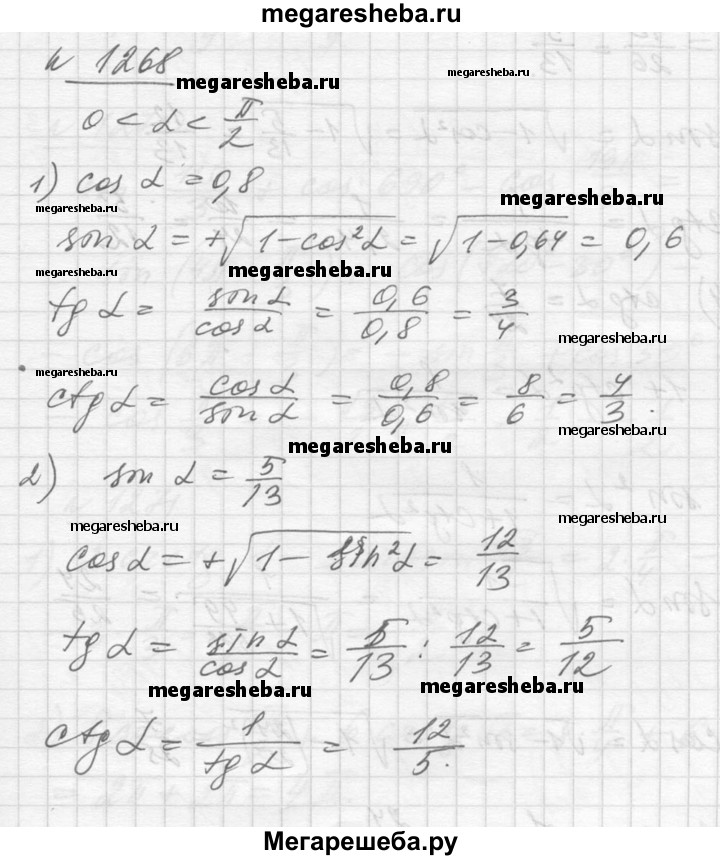 megaresheba.ru
N 1268
megaresheba.ru
megaresheba.ru
0 < α < π/2
1) cos α = 0,8
megaresheba.ru
megaresheba.ru
sin α = +√(1−cos²α) = √(1−0,64) = 0,6
megaresheba.ru
megaresheba.ru
tg α = sin α/cos α = 0,6/0,8 = 3/4
megaresheba.ru
megaresheba.ru
ctg α = cos α/sin α = 0,8/0,6 = 8/6 = 4/3.
megaresheba.ru
megaresheba.ru
2) sin α = 5/13
megaresheba.ru
megaresheba.ru
cos α = +√(1−sin²α) = 12/13
tg α = sin α/cos α = 5/13 : 12/13 = 5/12
megaresheba.ru
megaresheba.ru
ctg α = 1/tg α = 12/5.
Мегарешеба.ру